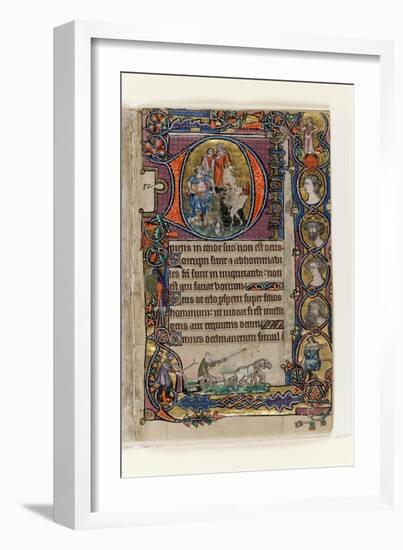 52
D
ipiens in corde suo: non est deus
Corrupti sunt & abhominabi
les fci sunt in iniquitatib: non
est qui faciat bonum
Deus de celo pspexit super filios
hominum: ut uideat si est intelli
gens aut requirens deum
Omnes declinauerunt simul